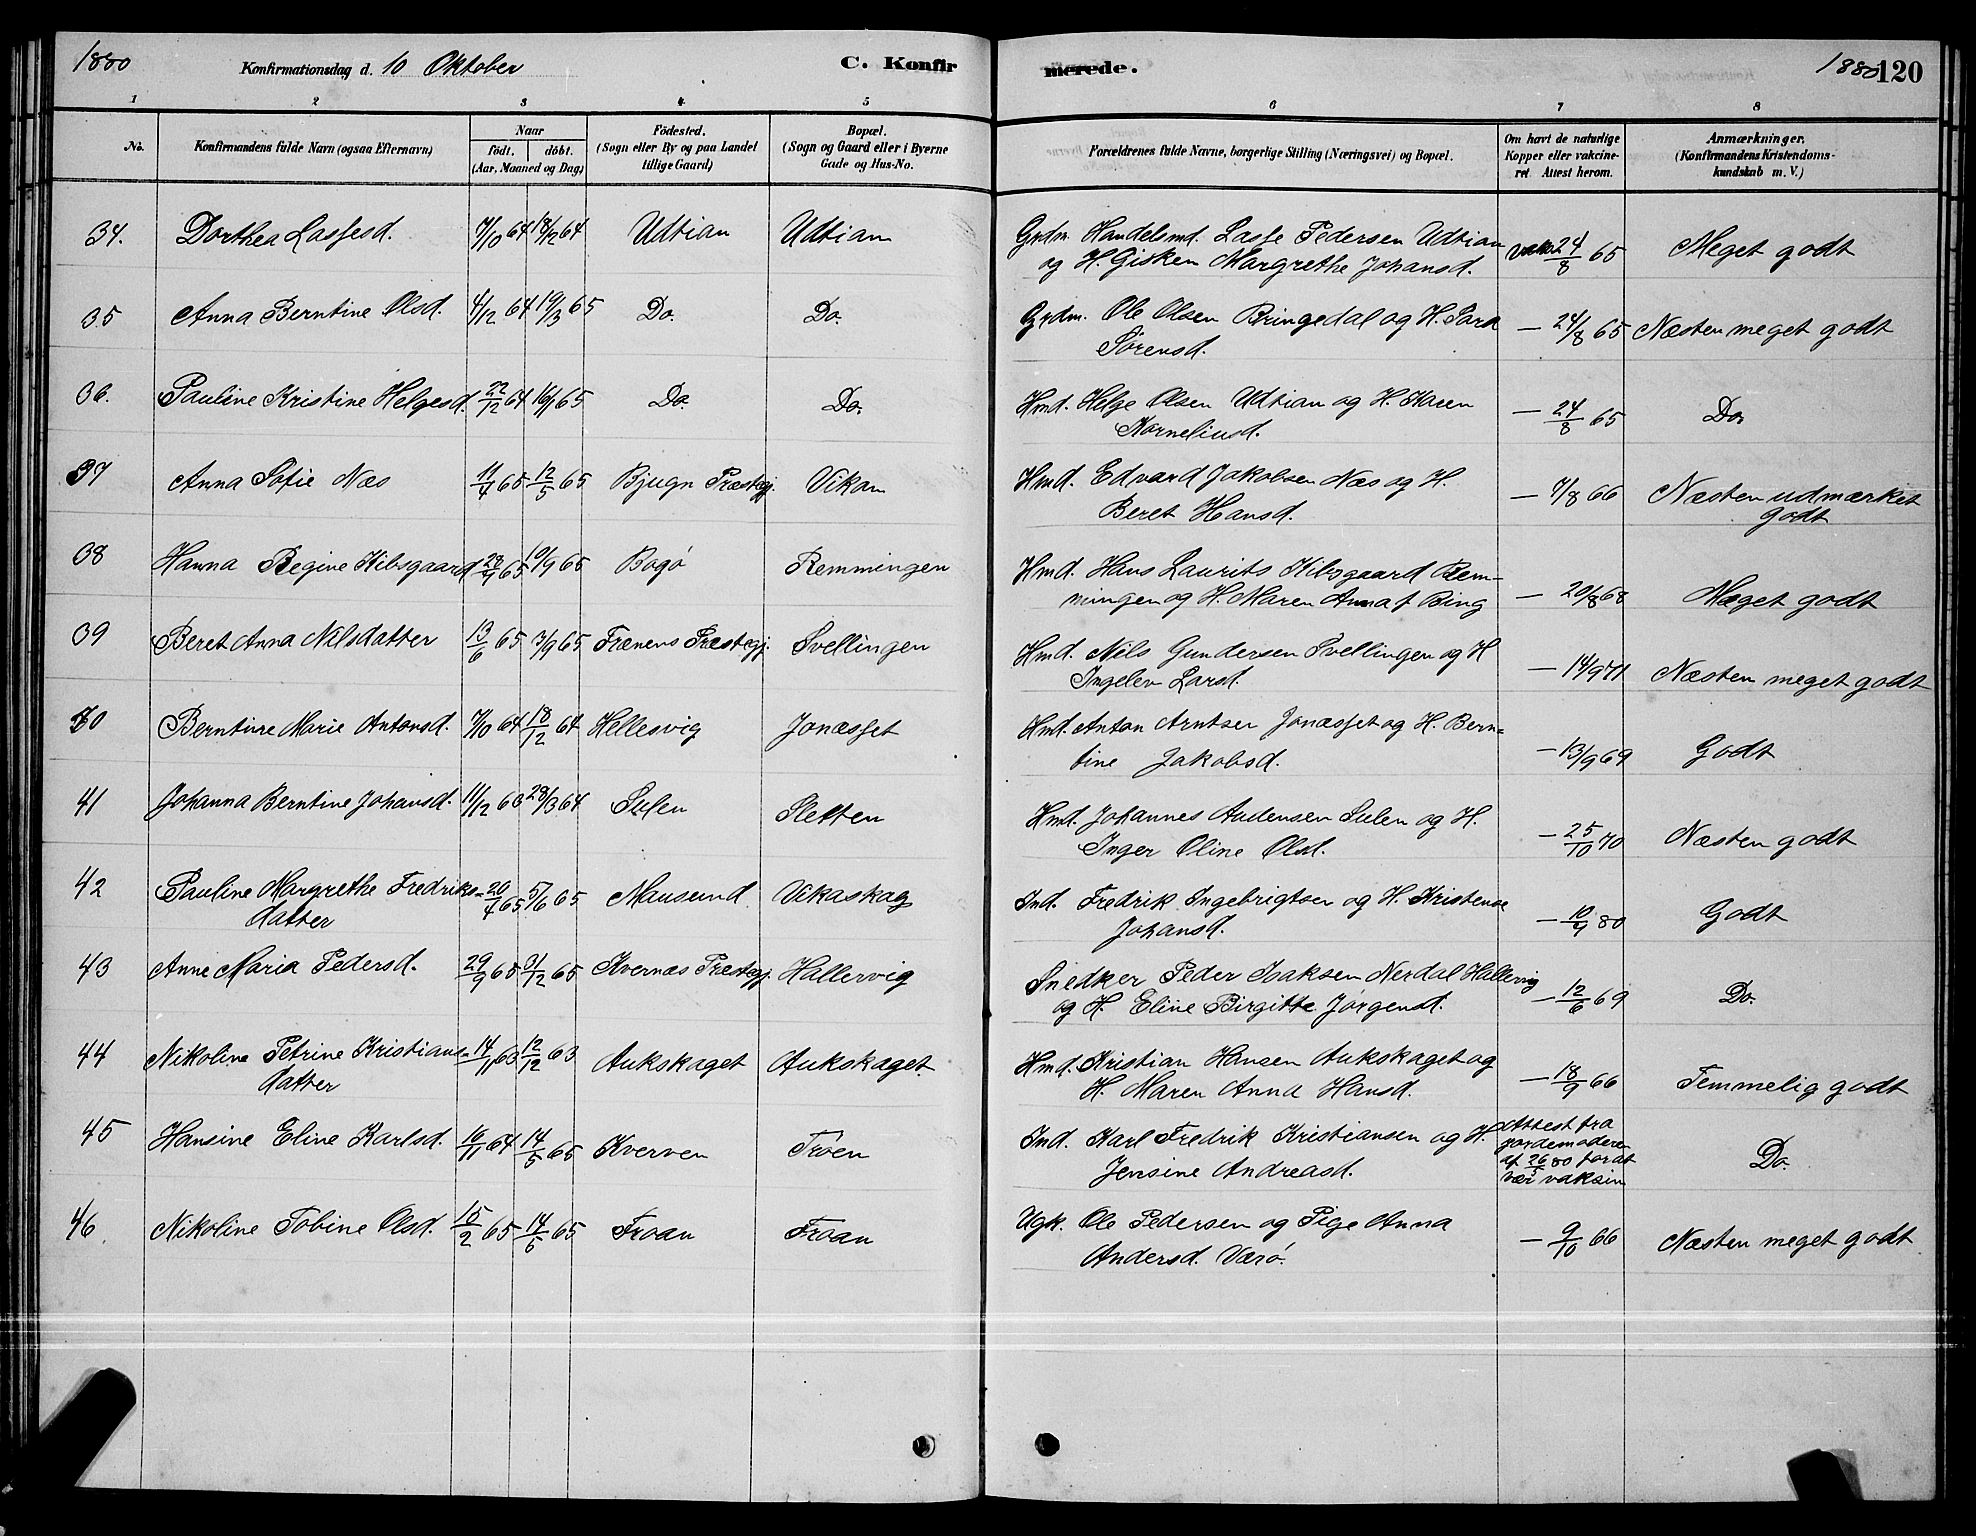 1880 Konfirmationsdag d. 10 Oktober C. Konfirmerede. 1880 120
1 2 3 4 5 6 7 8
No. Konfirmandens fulde Navn (ogsaa Efternavn) Naar født. døbt. (Aar, Maaned og Dag) Fødested. (Sogn eller By og paa Landet tillige Gaard) Bopæl. (Sogn og Gaard eller i Byerne Gade og Hus-No. Forældrenes fulde Navne, borgerlige Stilling (Næringsvei) og Bopæl. Om havt de naturlige Kopper eller vakcineret Attest herom. Anmærkninger. (Konfirmandens Kristendomskundskab m. V.)
34. Dorthea Lassesd. 7/10 64 18/12 64 Udtian Udtian Grdm. Handelsmd. Lasse Pedersen Udtian
og H. Gisken Margrethe Johansd. vakc 24/8 65 Meget godt
35 Anna Berntine Olsd. 4/12 64 19/3 65 Do. Do. Grdm. Ole Olsen Bringedal og H. Sara
Sørensd. — 24/8 65 Næsten meget godt
36. Pauline Kristine Helgesd. 22/12 64 16/1 65 Do. Do. Hmd. Helge Olsen Udtian og H. Karen
Korneliusd. — 24/8 65 Do.
37 Anna Sofie Næs 11/4 65 12/5 65 Bjugn Præstegj. Vikan Hmd. Edvard Jakobsen Næs og H.
Beret Hansd. — 7/8 66 Næsten udmærket
godt
38 Hanna Regine Kibsgaard 28/4 65 10/9 65 Bogø Remmingen Hmd. Hans Laurits Kibsgaard Rem-
mingen og H. Maren Anna f Bing — 20/8 68 Meget godt
39 Beret Anna Nilsdatter 13/6 65 3/9 65 Frænens Præstegj. Svellingen Hmd. Nils Gundersen Svellingen og H
Ingelev Larsd. — 14/9 71 Næsten meget godt
40 Berntine Marie Antonsd. 7/10 64 18/12 64 Hellesvig Jonæsset Hmd. Anton Arntsen Jonæsset og H. Bern-
tine Jakobsd. — 13/9 69 Godt
41 Johanna Berntine Johansd. 11/12 63 28/3 64 Sulen Sletten Hmd. Johannes Andersen Sulen og H.
Inger Oline Olsd. — 25/10 70 Næsten godt
42 Pauline Margrethe Fredriks- 20/4 65 5/6 65 Mausund Vikaskag Ind. Fredrik Ingebrigtsen og H. Kristense
datter Johansd. — 10/9 80 Godt
43 Anne Maria Pedersd. 29/9 65 31/12 65 Kvernæs Præstegj. Hallervig Snedker Peder Isaksen Nerdal Hallervig
og H. Eline Birgitte Jørgensd. — 12/6 69 Do.
44 Nikoline Petrine Kristians- 14/11 63 12/12 63 Aukskaget Aukskaget. Hmd. Kristian Hansen Aukskaget og
datter H. Maren Anna Hansd. — 18/9 66 Temmelig godt
45 Hansine Eline Karlsd. 16/11 64 14/5 65 Kverven Trøen Ind. Karl Fredrik Kristiansen og H.
Jensine Andreasd. Attest fra
Jordemoderen
af 26/5 80 for at
vær vaksin Do.
46. Nikoline Tobine Olsd. 15/2 65 14/5 65 Froan Froan Ugk. Ole Pedersen og Pige Anna
Andersd. Værø. — 9/10 66 Næsten meget godt